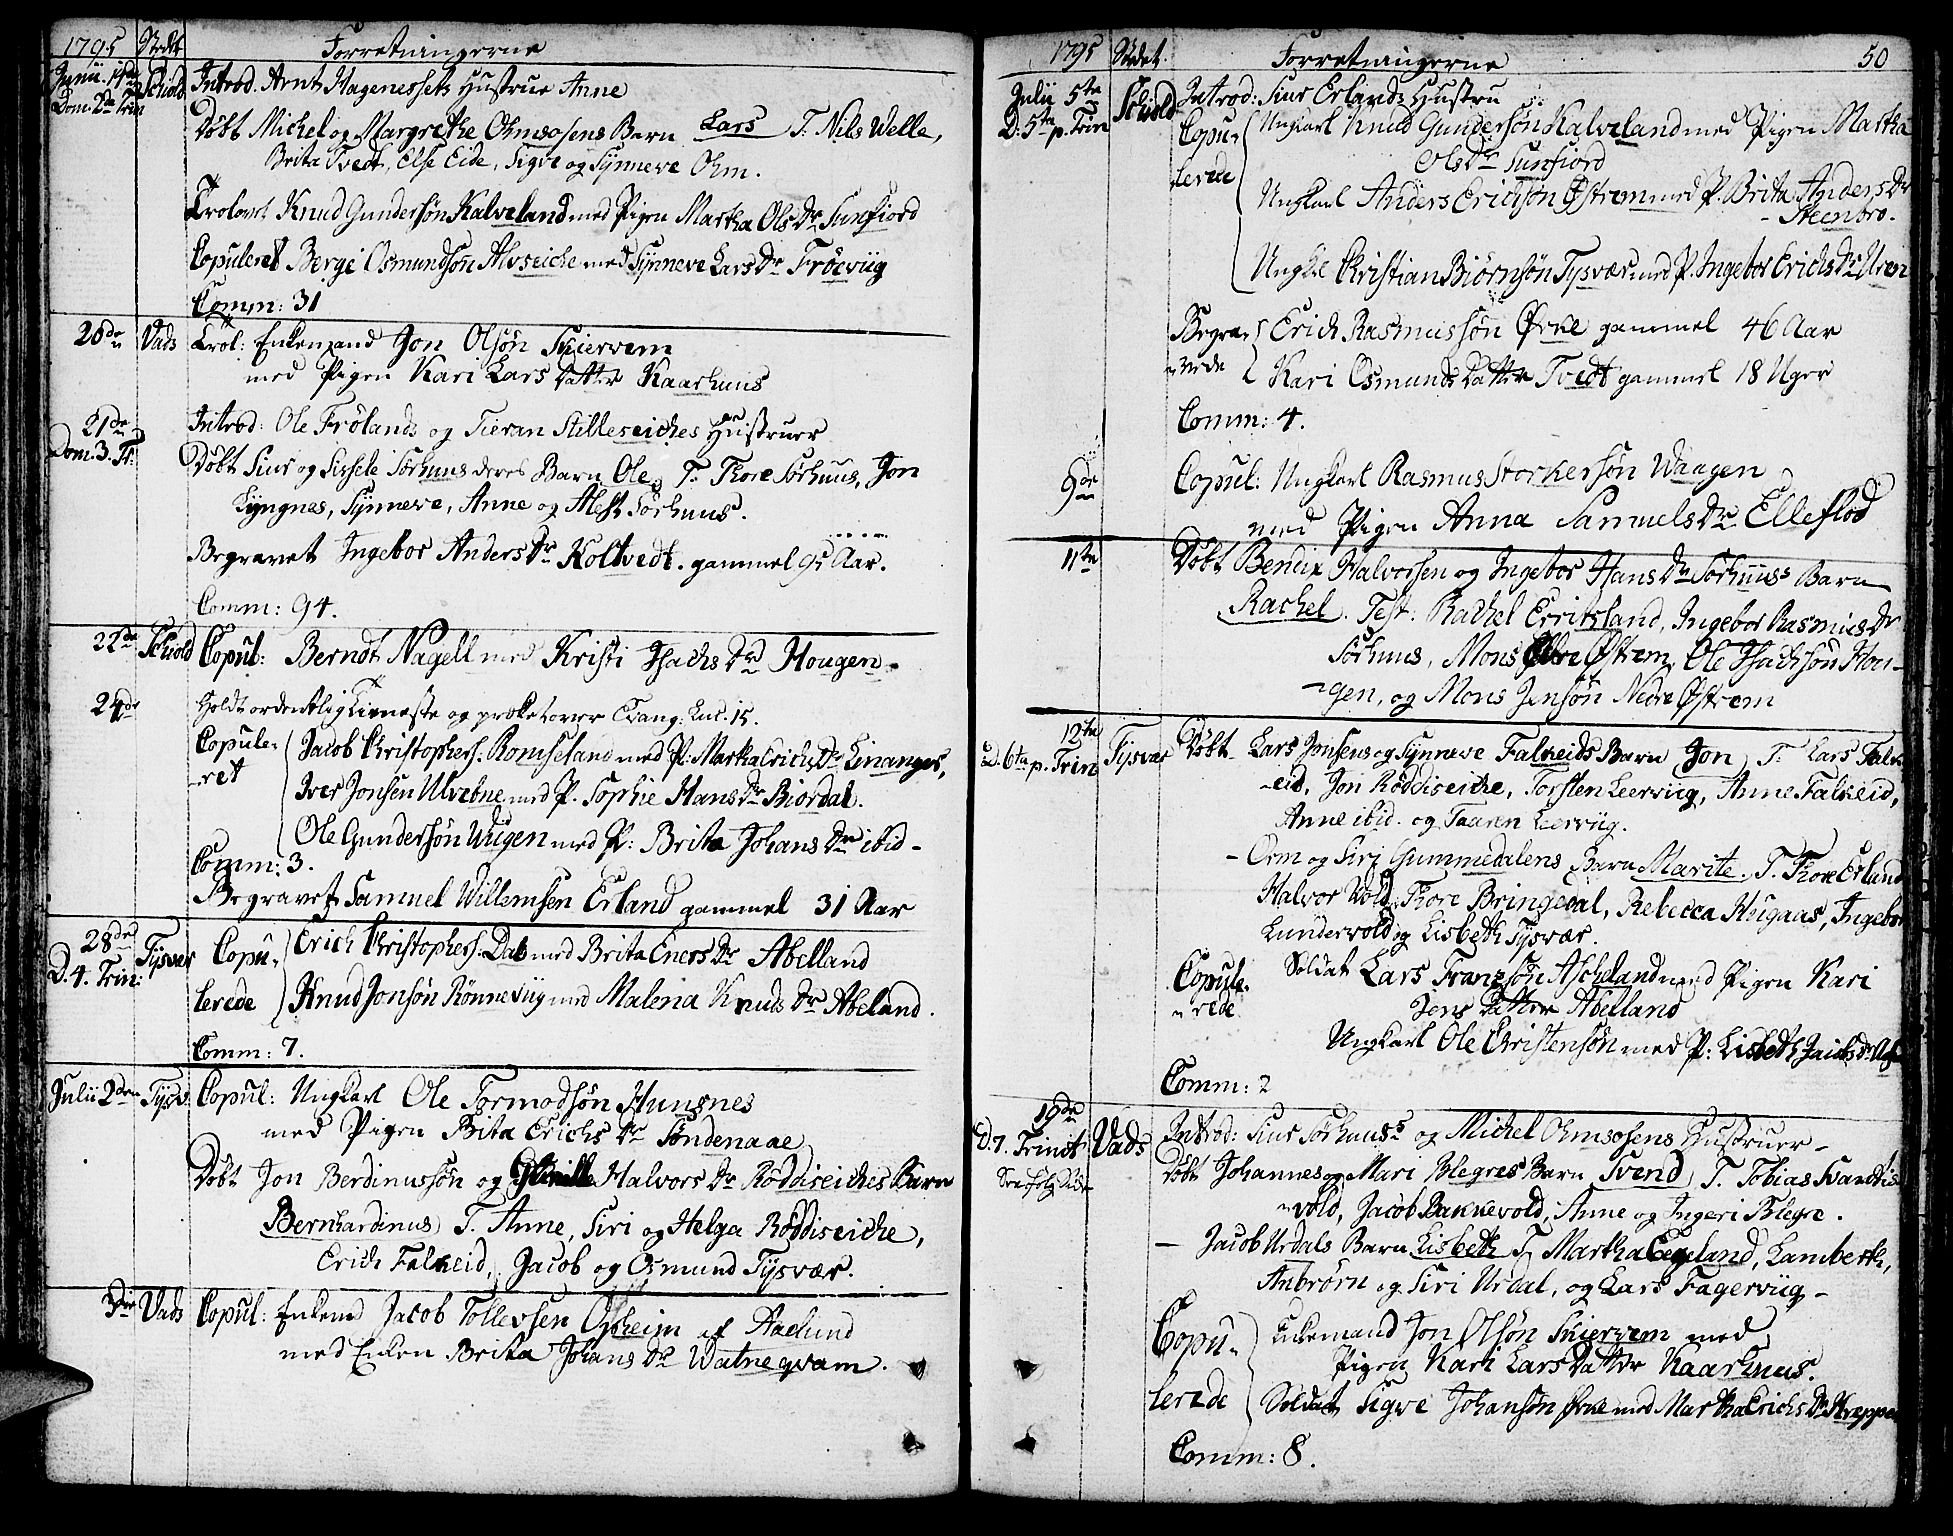 1795 Stedet Forretningerne
Junii 14de Skiold Introd. Arnt Hagenessets Hustrue Anne
Dom. 2da Trin
Døbt Michel og Margrethe Ohmsosens Barn Lars T. Nils Welle,
Brita Tvedt, Else Eide, Sigve og Synneve Ohm.
Trolovet Knud Gundersøn Kalveland med Pigen Martha Ols Dr Sunfiord
Copuleret Berge Osmundsøn Alvseiche med Synneve Lars Dr Frøeviig
Comm: 31
20de Vads Trol: Enkemand Jon Olsøn Skiervem
med Pigen Kari Lars Datter Kaarhuus
21de Introd: Ole Frølands og Tieran Stilleseiches Hustruer
Dom. 3. Tr. Døbt Siur og Sissele Sørhuus deres Barn Ole, T. Thore Sørhuus, Jon
Lyngnes, Synneve, Anne og Alest Sørhuus.
Begravet Ingebor Anders Dr Koltvedt. gammel 95 Aar.
Comm: 94.
22de Skiold Copul: Berndt Nagell med Kristi Isachs Dr Hougen.
24de Holdt ordentlig Tieneste og præket over Evang: Luc. 15.
Copule- Jacob Christophers: Romseland med P: Martha Erichs Dr Linanger,
ret Iver Jonsen Ulvebne med P. Sophie Hans Dr Biordal.
Ole Gundersøn Wiigen med P: Brita Johans Dr ibid-
Comm: 3.
Begravet Samuel Willemsen Erland gammel 31 Aar
28de Tysvær Copu- Erich Christophers: Dal med Brita Eners Dr Abelland
D. 4. Trin: lerede Knud Jonsøn Rønneviig med Malena Knuds Dr Abeland.
Comm: 7.
Julii 2den Tysv. Copul: Ungkarl Ole Tormodsøn Hunsnes
med Pigen Brita Erichs Dr Søndenaae
Døbt Jon Berdinussøn og Halvors Dr Røddiseiches Barn
Bernhardinus T. Anne, Siri og Helga Røddiseiche,
Erich Falkeid, Jacob og Osmund Tysvær.
3die Vads Copul: Enkemd Jacob Tollevsen Opheim af Aaelund
med Enken Brita Johans Dr Watneqvam.
1795 Stedet. Forretningerne 50
Julii 5te Skiold Introd: Siur Erlands Hustru
D: 5te p. Trin Copu- Ungkarl Knud Gundersøn Kalveland med Pigen Martha
Ols Dr Sunfiord
lerede Ungkarl Anders Erichsøn Østrem med P. Brita Anders Dr
- Steenbro.
Ungkl Christian Biørnsøn Tysvær med P. Ingebor Erichs Dr Uren
Begra- Erich Rasmussøn Ørke gammel 46 Aar
vede Kari Osmunds Datter Tvedt gammel 18 Uger
Comm: 4.
9de Copul: Ungkarl Rasmus Storkersøn Waagen
med Pigen Anna Samuels Dr Elleflod
11te Døbt Bendix Halvorsen og Ingebor Hans Dr Sørhuuss Barn
Rachel. Test: Rachel Erritsland, Ingebor Rasmus Dr
Sørhuus, Mons Øvre Østrem, Ole Isachsøn Hou-
-gen, og Mons Jensøn Nedre Østrem
12te Tysvær Døbt Lars Jonsens og Synneve Falkeids Barn Jon T. Lars Falk-
D. 6te p. Trin -eid, Jon Røddiseiche, Torsten Leerviig, Anne Falkeid,
Anne ibid. og Taaren Leerviig.
- Orm og Siri Gummedalens Barn Marite. T. Thore Erland
Halvor Vold, Thore Bringedal, Rebecca Heigaas, Ingebor
Lundervold og Lisbeth Tysvær.
Copule- Soldat Lars Franzsøn Ascheland med Pigen Kari
rede Jens Datter Abelland
Ungkarl Ole Christensøn med P: Lisbeth
Comm: 2
19de Vads Introd: Siur Sørhuuss og Michel Ohmsosens Hustruer -
D. 7. Trinit: Døbt Johannes og Mari Blegres Barn Svend T. Tobias Svandtis-
-vold, Jacob Bakkevold, Anne og Ingeri Blegre.
- Jacob Urdals Barn Lisbeth T. Martha Egeland, Lamberth,
Anbrørn og Siri Urdal, og Lars Fagerviig -
Copu- Enkemand Jon Olsøn Skiervem med
Pigen Kari Lars Datter Kaarhuus.
lerede Soldat Sigve Johansøn Ørke med Martha Erichs Dr Kreppen
Comm: 8.